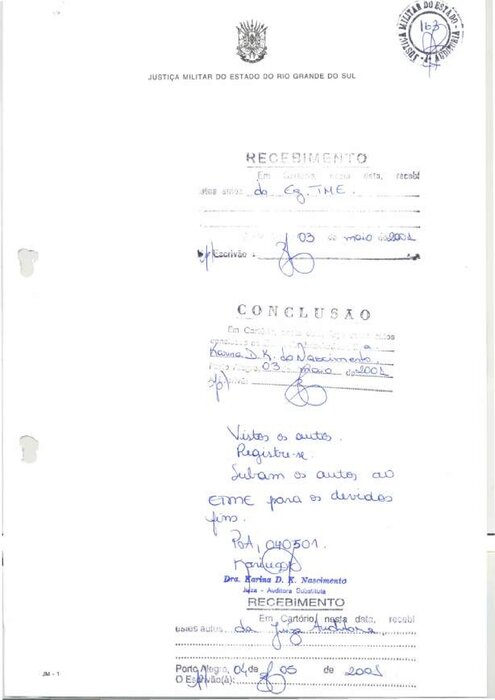 JUSTIÇA MILITAR DO ESTADO
163
JUSTIÇA MILITAR DO ESTADO DO RIO GRANDE DO SUL
RECEBIMENTO
Em Cartório, nesta data, recebi
estes autos do Eg. TME.
03 de maio de 2001
p/ Escrivão :
CONCLUSÃO
Em Cartório, nesta data, faço estes autos
conclusos
Karina D. K. do Nascimento
03 maio de 2001
p/
Vistos os autos.
Registre-se.
Subam os autos ao
ETME para os devidos
fins.
PoA, 040501.
Dra. Karina D. K. Nascimento
Juíza - Auditora Substituta
RECEBIMENTO
Em Cartório, nesta data, recebi
esses autos da Juíza Auditora,
Porto Alegre, 04 de 05 de 2001
O Escrivão(ã):
JM - 1